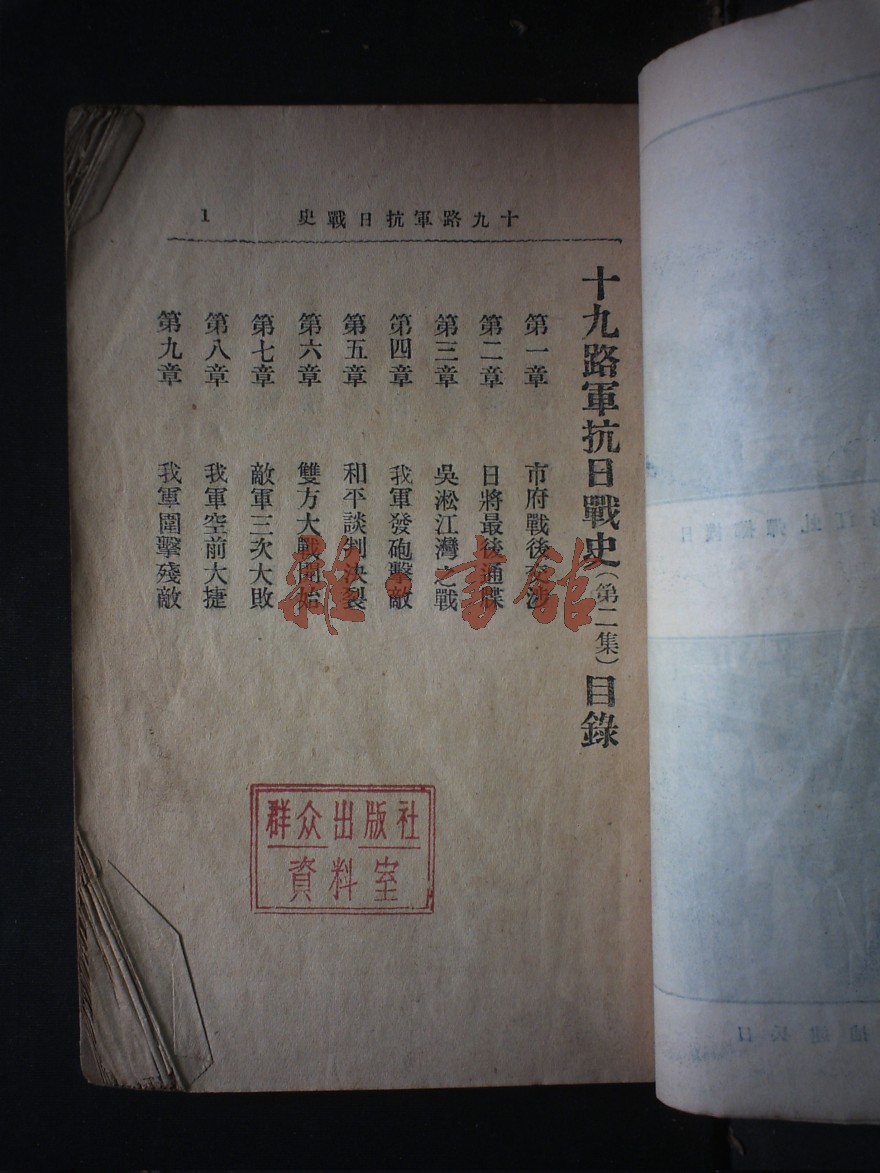 十九路軍抗日戰史
1
十九路軍抗日戰史（第二集）目錄
第一章 市府戰後交涉
第二章 日將最後通牒
第三章 吳淞江灣之戰
第四章 我軍發砲擊敵
第五章 和平談判決裂
第六章 雙方大戰開始
第七章 敵軍三次大敗
第八章 我軍空前大捷
第九章 我軍圍擊殘敵
雜·書館
群众出版社
資料室